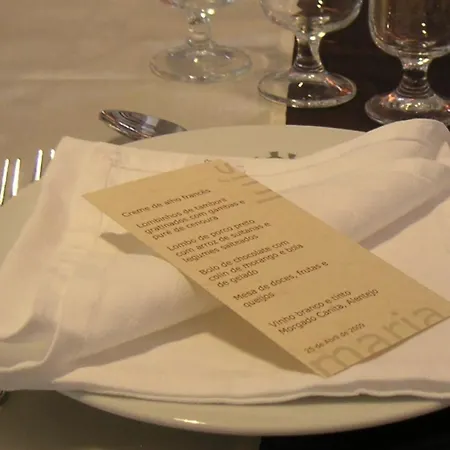 Creme de alho francês
Lombinhos de tamboril
gratinados com gambas e
puré de cenoura
Lombo de porco preto
com arroz de sultanas e
legumes salteados
Bolo de chocolate com
colin de morango e bola
de gelado
Mesa de doces, frutas e
queijos
Vinho branco e tinto
Morgado Canita, Alentejo
25 de Abril de 2005
maria